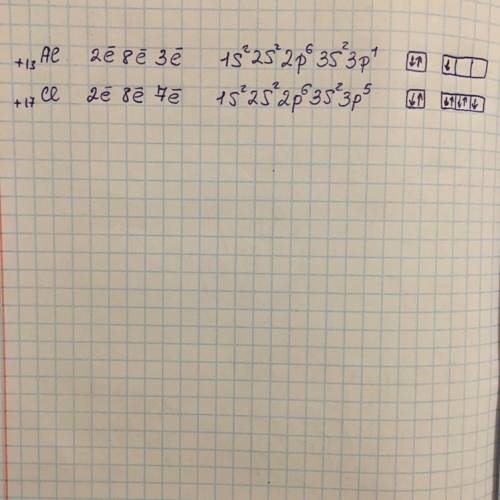 +13 Al 2ē 8ē 3ē 1s²2s²2p⁶3s²3p¹ ↓↑ ↓
+17 Cl 2ē 8ē 7ē 1s²2s²2p⁶3s²3p⁵ ↓↑ ↓↑ ↓↑ ↓